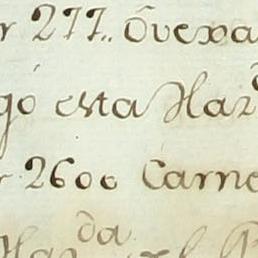 r 277.. Ovexa
gó esta Haz
r 2600 Carne
Haz da